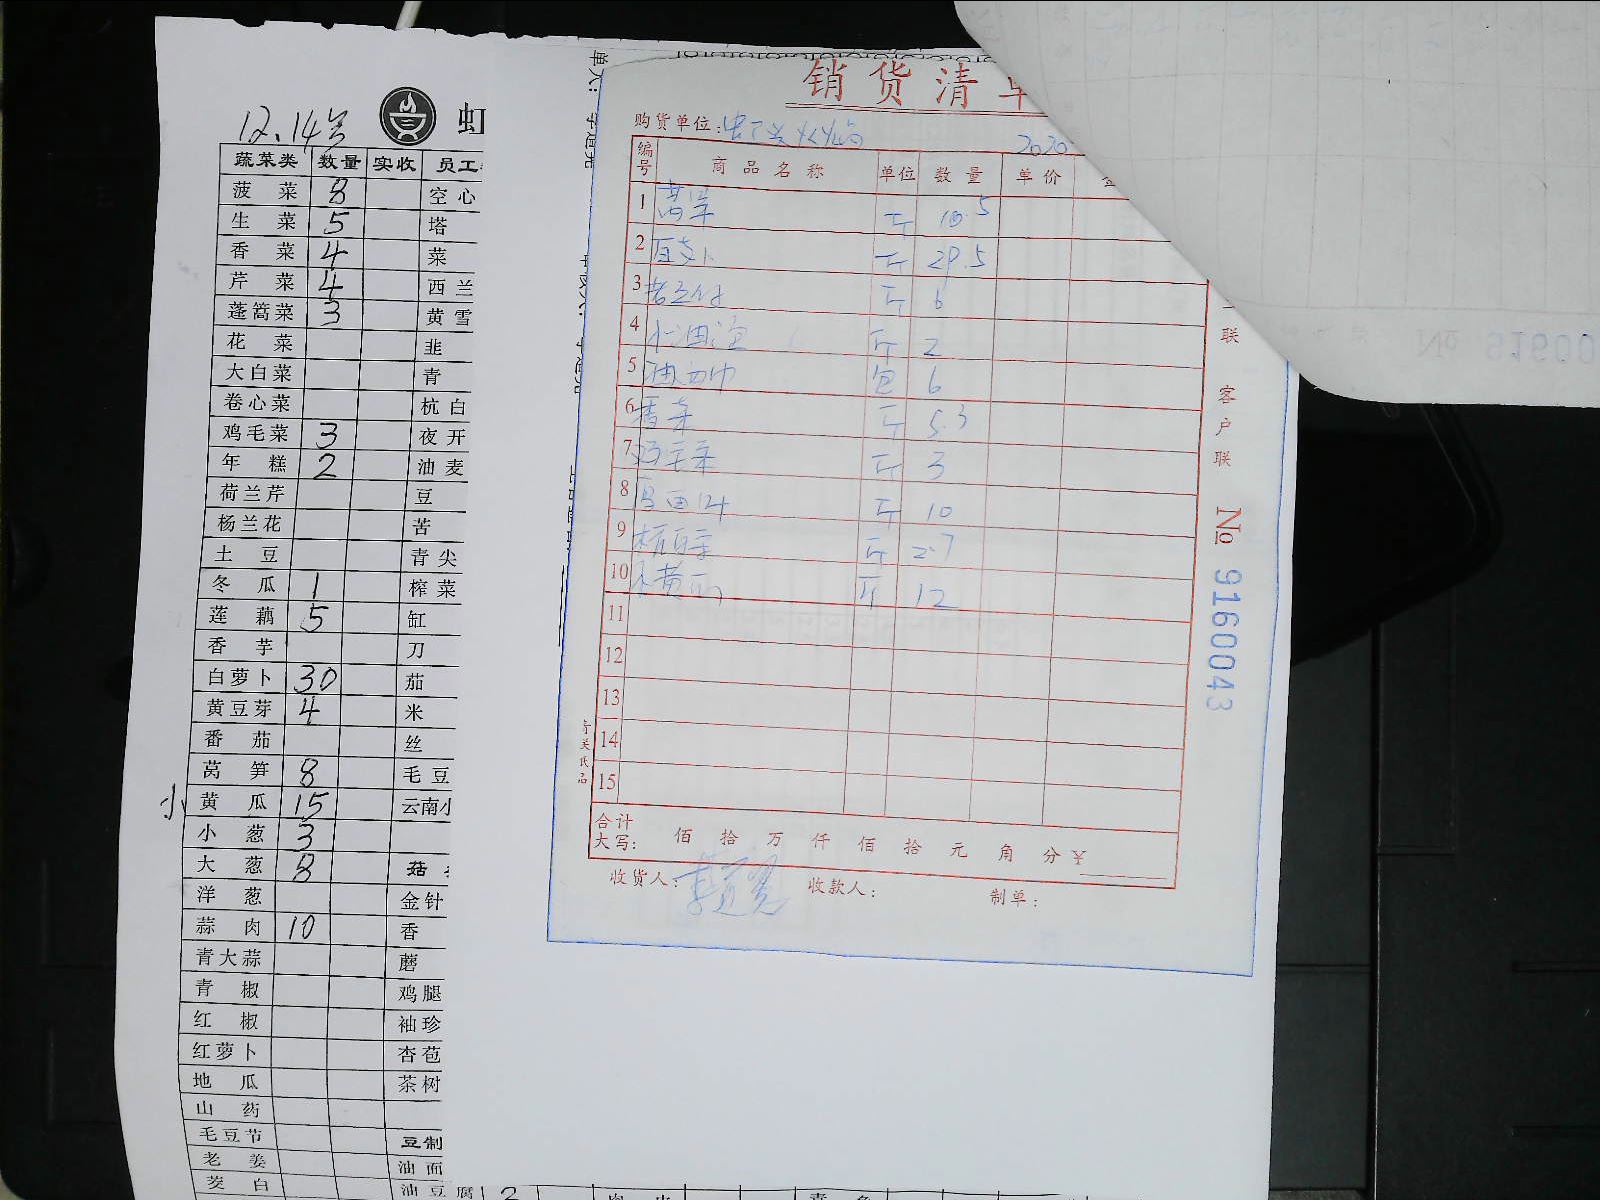 12.14号
虹
蔬菜类 数量 实收 员工
菠菜 8 空心
生菜 5 塔
香菜 4 菜
芹菜 4 西兰
蓬蒿菜 3 黄雪
花菜 韭
大白菜 青
卷心菜 杭白
鸡毛菜 3 夜开
年糕 2 油麦
荷兰芹 豆
杨兰花 苦
土豆 青尖
冬瓜 1 榨菜
莲藕 5 缸
香芋 刀
白萝卜 30 茄
黄豆芽 4 米
番茄 丝
莴笋 8 毛豆
小黄瓜 15 云南小
小葱 3
大葱 8 菇
洋葱 金针
蒜肉 10 香
青大蒜 蘑
青椒 鸡腿
红椒 袖珍
红萝卜 杏苞
地瓜 茶树
山药
毛豆节 豆制
老姜 油面
茭白 油豆腐 2
销货清单
购货单位: 2020
编号 商品名称 单位 数量 单价
1 莴笋 斤 10.5
2 白萝卜 斤 29.5
3 斤 6
4 斤 2
5 包 6
6 香菜 斤 5.3
7 鸡毛菜 斤 3
8 斤 10
9 杭白菜 斤 2.7
10 小黄瓜 斤 12
11
12
13
14
15
合计
大写: 佰 拾 万 仟 佰 拾 元 角 分 ¥
收货人: 收款人: 制单:
联 客户联
No 9160043